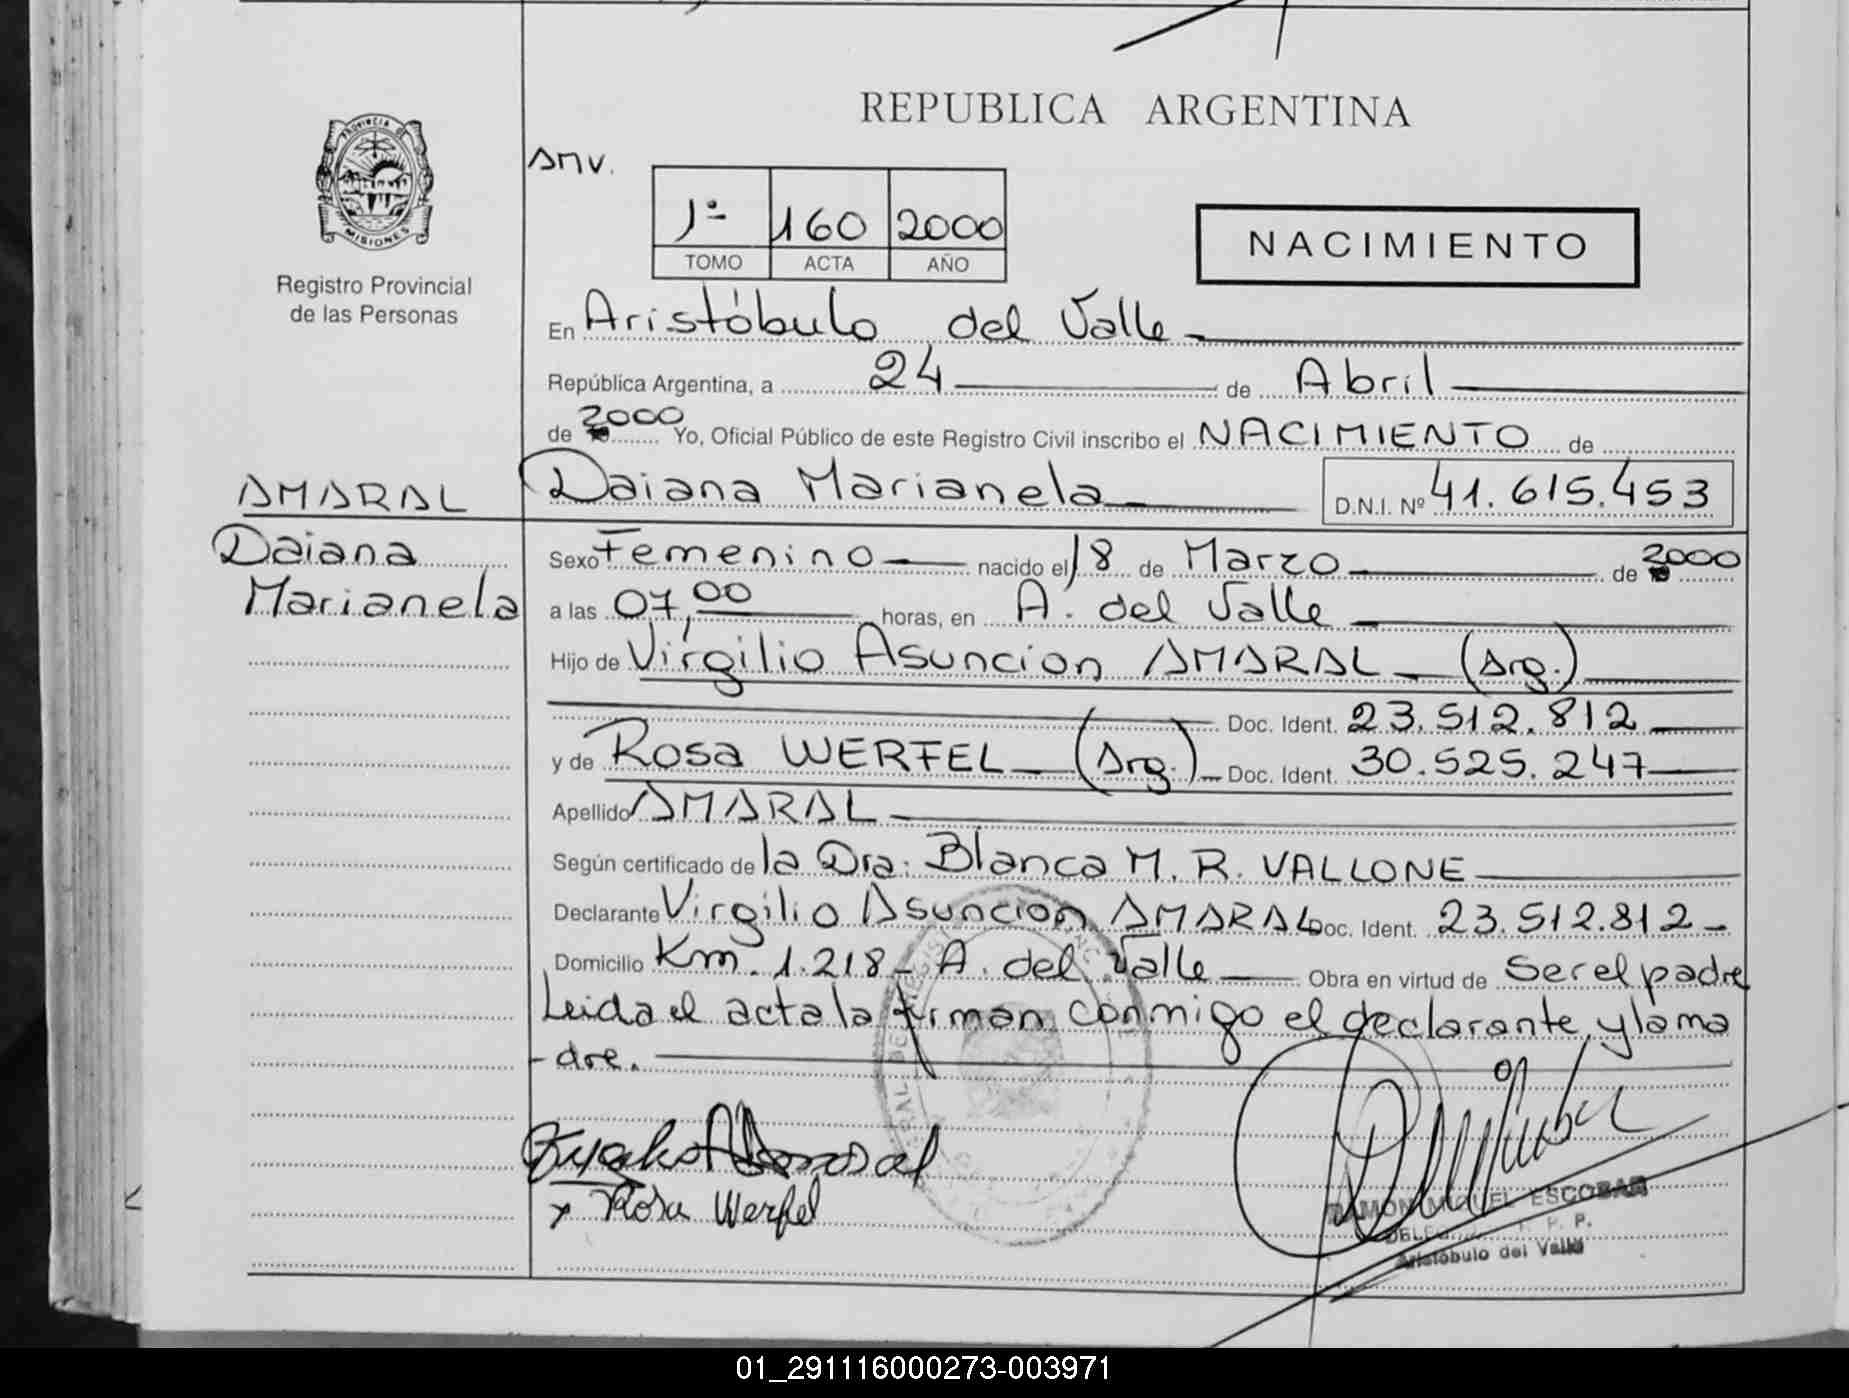 REPUBLICA ARGENTINA
PROVINCIA DE
MISIONES
Registro Provincial
de las Personas
AMV.
1º 160 2000
TOMO ACTA AÑO
NACIMIENTO
En Aristóbulo del Valle
República Argentina, a 24 de Abril
de 2000 Yo, Oficial Público de este Registro Civil inscribo el NACIMIENTO de
AMARAL
Daiana Marianela D.N.I. Nº 41.615.453
Daiana
Marianela
Sexo Femenino nacido el 18 de Marzo de 2000
a las 07,00 horas, en A. del Valle
Hijo de Virgilio Asuncion AMARAL (Arg.)
Doc. Ident. 23.512.812
y de Rosa WERFEL (Arg.) Doc. Ident. 30.525.247
Apellido AMARAL
Según certificado de la Dra. Blanca M. R. VALLONE
Declarante Virgilio Asuncion AMARAL Doc. Ident. 23.512.812
Domicilio Km. 1.218 - A. del Valle Obra en virtud de ser el padre
Leida el acta la firman conmigo el declarante y la ma
-dre.
Rosa Werfel
RAMON MIGUEL ESCOBAR
Aristóbulo del Valle
01_291116000273-003971